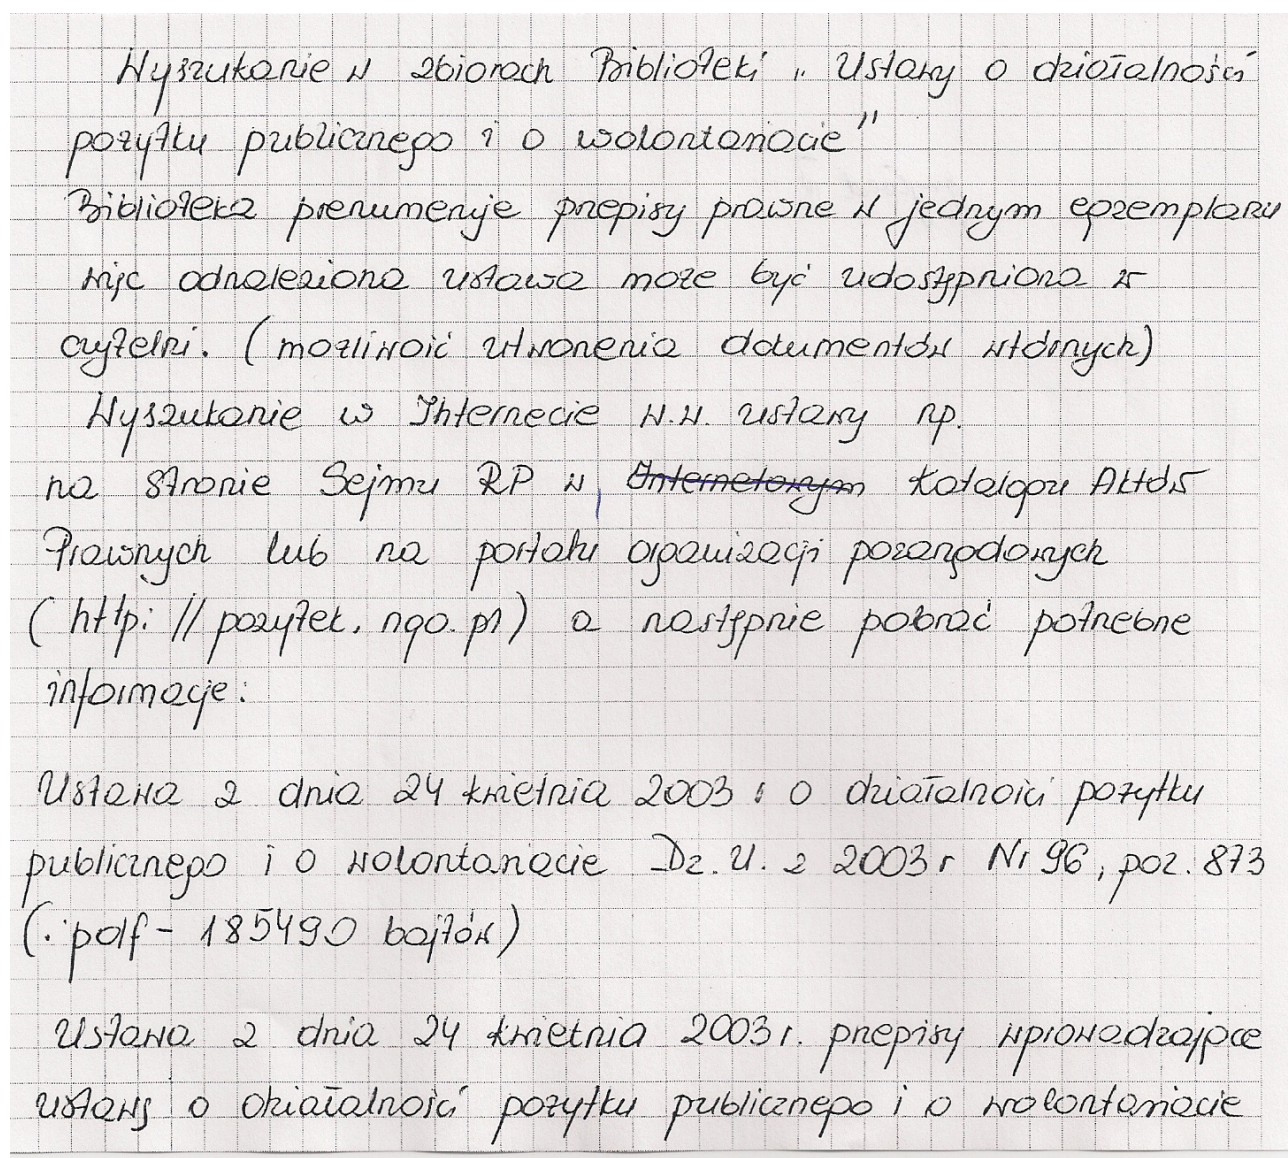 Wyszukanie w zbiorach Biblioteki „Ustawy o działalności
pożytku publicznego i o wolontariacie"
Biblioteka prenumeruje przepisy prawne w jednym egzemplarzu
więc odnaleziona ustawa może być udostępniona w
czytelni. (możliwość utworzenia dokumentów wtórnych)
Wyszukanie w Internecie w.w. ustawy np.
na stronie Sejmu RP w Internetowym Katalogu Aktów
Prawnych lub na portalu organizacji pozarządowych
(http://pozytek.ngo.pl) a następnie pobrać potrzebne
informacje:
Ustawa z dnia 24 kwietnia 2003 r o działalności pożytku
publicznego i o wolontariacie Dz.U. z 2003 r Nr 96, poz. 873
(.pdf - 185490 bajtów)
Ustawa z dnia 24 kwietnia 2003 r. przepisy wprowadzające
ustawę o działalność pożytku publicznego i o wolontariacie